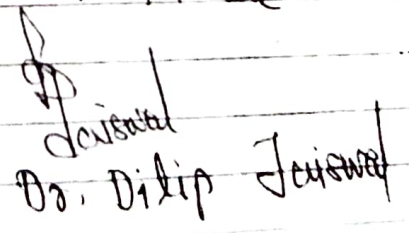 Jaiswal
Dr. Dilip Jaiswal